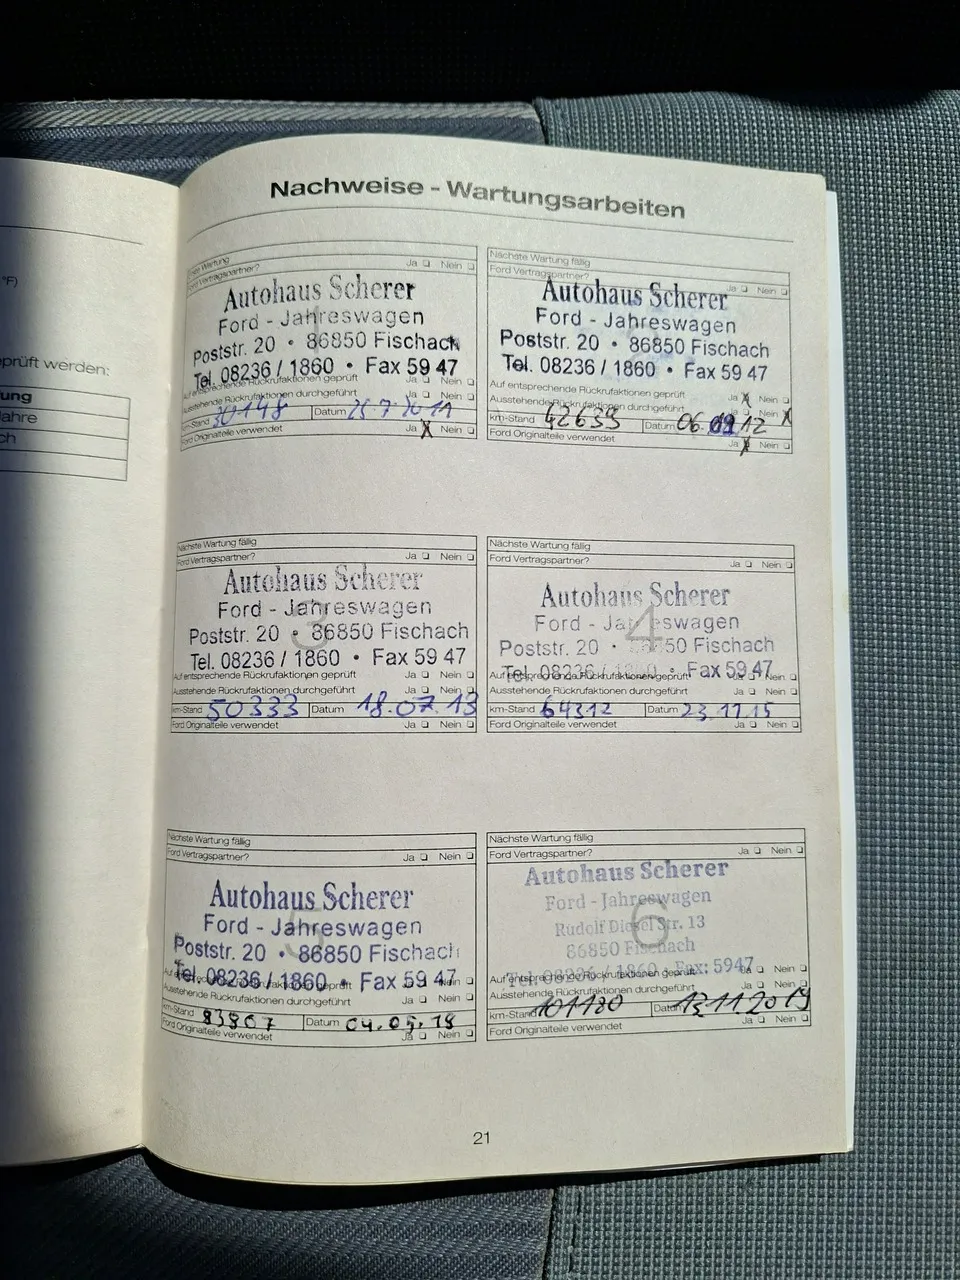 °F)
eprüft werden:
ung
ahre
ch
Nachweise - Wartungsarbeiten
ste Wartung
Ford Vertragspartner? Ja ❏ Nein ❏
Autohaus Scherer
Ford - Jahreswagen
Poststr. 20 • 86850 Fischach
Tel. 08236 / 1860 • Fax 59 47
Auf entsprechende Rückrufaktionen geprüft Ja ❏ Nein ❏
Ausstehende Rückrufaktionen durchgeführt Ja ❏ Nein ❏
km-Stand 30148 Datum 25.7.2011
Ford Originalteile verwendet Ja X Nein ❏
Nächste Wartung fällig
Ford Vertragspartner? Ja ❏ Nein ❏
Autohaus Scherer
Ford - Jahreswagen
Poststr. 20 • 86850 Fischach
Tel. 08236 / 1860 • Fax 59 47
Auf entsprechende Rückrufaktionen geprüft Ja X Nein ❏
Ausstehende Rückrufaktionen durchgeführt Ja ❏ Nein X
km-Stand 42639 Datum 06. 12
Ford Originalteile verwendet Ja X Nein ❏
Nächste Wartung fällig
Ford Vertragspartner? Ja ❏ Nein ❏
3
Autohaus Scherer
Ford - Jahreswagen
Poststr. 20 • 86850 Fischach
Tel. 08236 / 1860 • Fax 59 47
Auf entsprechende Rückrufaktionen geprüft Ja ❏ Nein ❏
Ausstehende Rückrufaktionen durchgeführt Ja ❏ Nein ❏
km-Stand 50333 Datum 18.07.13
Ford Originalteile verwendet Ja ❏ Nein ❏
Nächste Wartung fällig
Ford Vertragspartner? Ja ❏ Nein ❏
4
Autohaus Scherer
Ford - Jahreswagen
Poststr. 20 • 86850 Fischach
Tel. 08236 / 1860 • Fax 59 47
Auf entsprechende Rückrufaktionen geprüft Ja ❏ Nein ❏
Ausstehende Rückrufaktionen durchgeführt Ja ❏ Nein ❏
km-Stand 64312 Datum 23.11.15
Ford Originalteile verwendet Ja ❏ Nein ❏
Nächste Wartung fällig
Ford Vertragspartner? Ja ❏ Nein ❏
5
Autohaus Scherer
Ford - Jahreswagen
Poststr. 20 • 86850 Fischach
Tel. 08236 / 1860 • Fax 59 47
Auf entsprechende Rückrufaktionen geprüft Ja ❏ Nein ❏
Ausstehende Rückrufaktionen durchgeführt Ja ❏ Nein ❏
km-Stand 83867 Datum 04.05.18
Ford Originalteile verwendet Ja ❏ Nein ❏
Nächste Wartung fällig
Ford Vertragspartner? Ja ❏ Nein ❏
6
Autohaus Scherer
Ford - Jahreswagen
Rudolf Diesel Str. 13
86850 Fischach
Tel. 08236 / 1860 • Fax: 5947
Auf entsprechende Rückrufaktionen geprüft Ja ❏ Nein ❏
Ausstehende Rückrufaktionen durchgeführt Ja ❏ Nein ❏
km-Stand 101180 Datum 13.11.2019
Ford Originalteile verwendet Ja ❏ Nein ❏
21